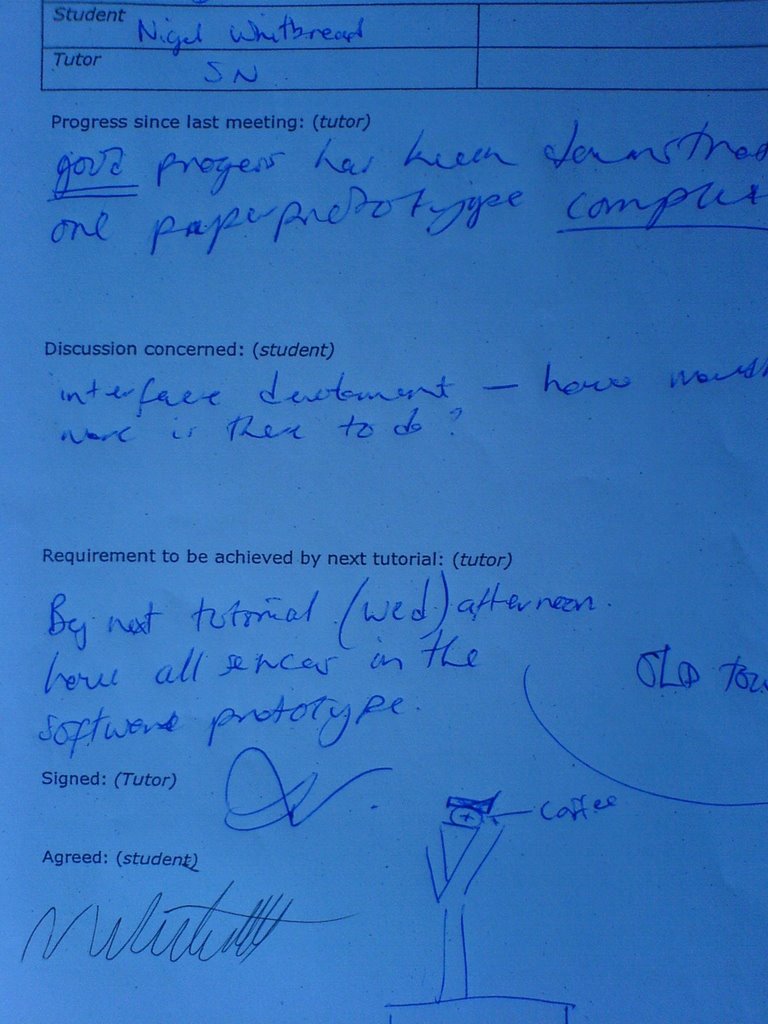 Student Nigel Whitbread
Tutor SN
Progress since last meeting: (tutor)
good progess has been demonstrat
one paper prototype complet
Discussion concerned: (student)
interface - how much
work is there to do?
Requirement to be achieved by next tutorial: (tutor)
By next tutorial (wed) afternoon.
have all in the
software prototype.
OLD
Signed: (Tutor)
coffee
Agreed: (student)